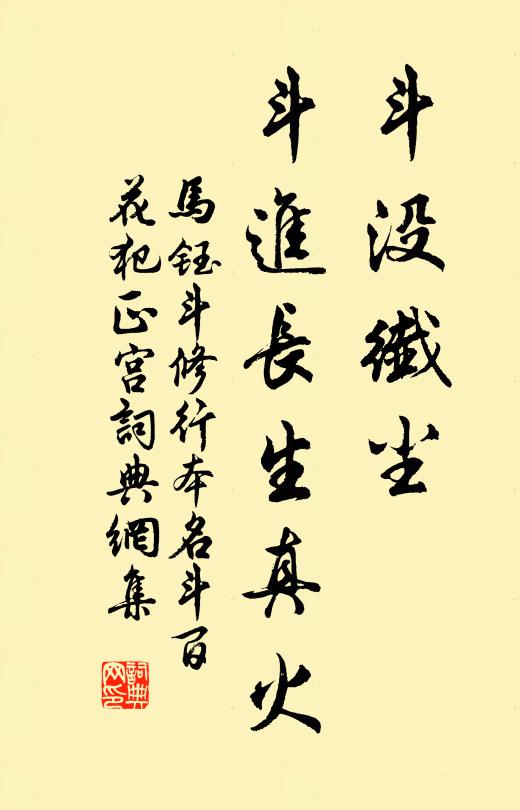 斗没纖尘
斗進長生真火
馬鈺斗修行本名斗百
花犯正宫詞典網集
詞典网印